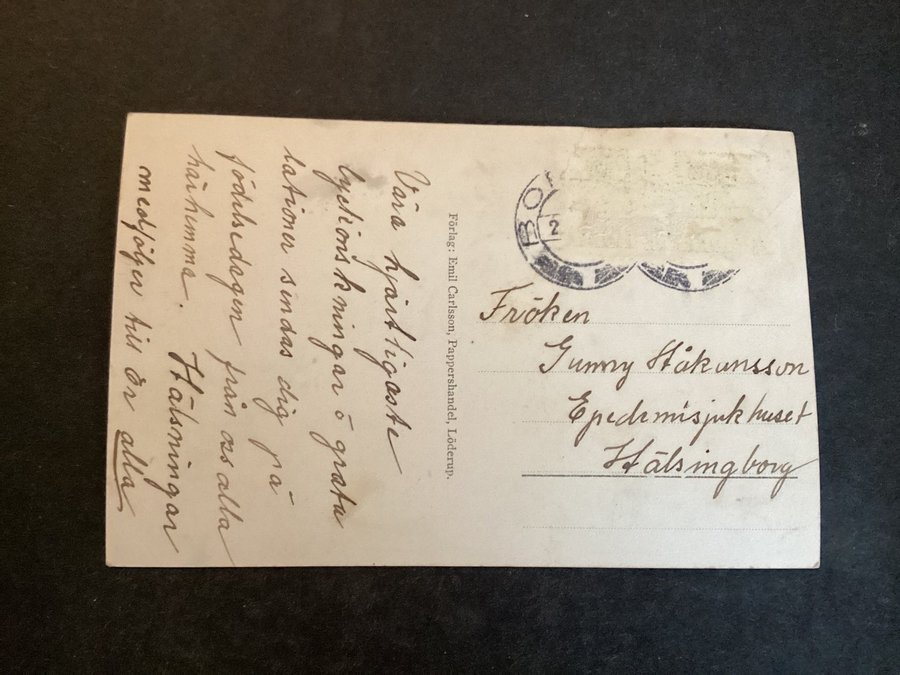 Våra hjärtligaste
lyckönskningar o gratu
lationer sändas dig på
födelsedagen från oss alla
härhemma. Hälsningar
medföljer till Er alla
Förlag: Emil Carlsson, Pappershandel, Löderup.
BO
2
Fröken
Gunny Håkansson
Epedemisjukhuset
Hälsingborg